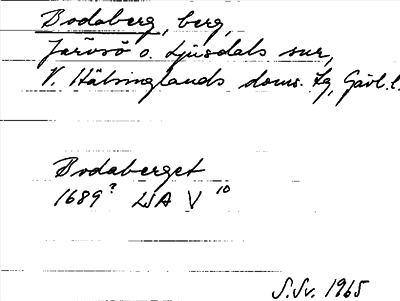 Bodaberg, berg,
Järvsö o. Ljusdals snr,
V. Hälsinglands doms. tg, Gävl. l.
Bodaberget
1689? LSA V 10
S.Sv. 1965